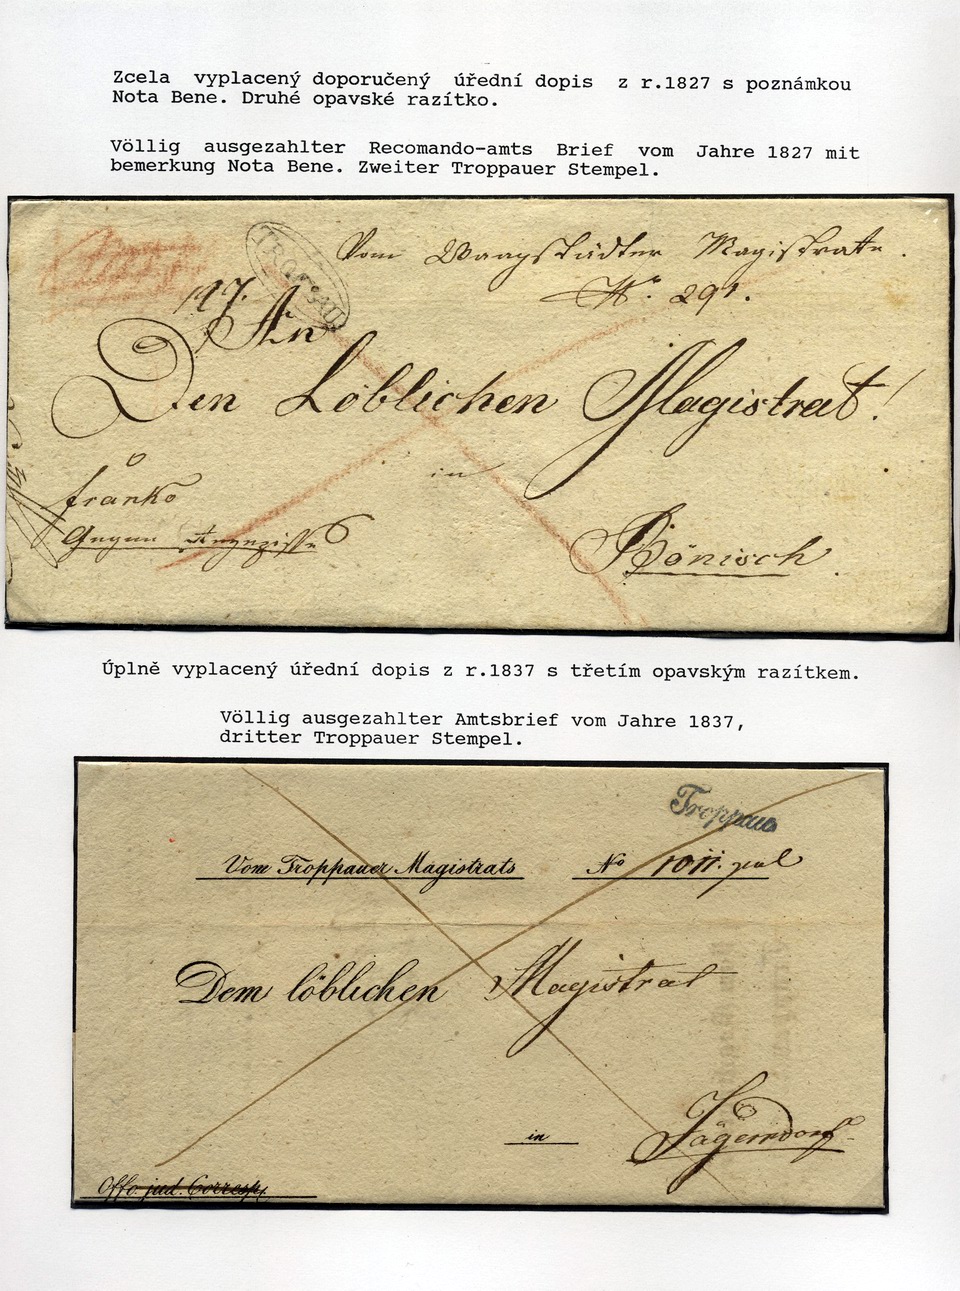 Zcela vyplacený doporučený úřední dopis z r.1827 s poznámkou
Nota Bene. Druhé opavské razítko.
Völlig ausgezahlter Recomando-amts Brief vom Jahre 1827 mit
bemerkung Nota Bene. Zweiter Troppauer Stempel.
TROPPAU
Vom Waagstädter Magistrate.
No. 291.
197.
An
Den Löblichen Magistrat!
in
franko
Gegen
Bönisch.
Úplně vyplacený úřední dopis z r.1837 s třetím opavským razítkem.
Völlig ausgezahlter Amtsbrief vom Jahre 1837,
dritter Troppauer Stempel.
Troppau
Vom Troppauer Magistrats No 1011.
Dem löblichen Magistrat
in
Jägerndorf
Offo. jud. Corresp.